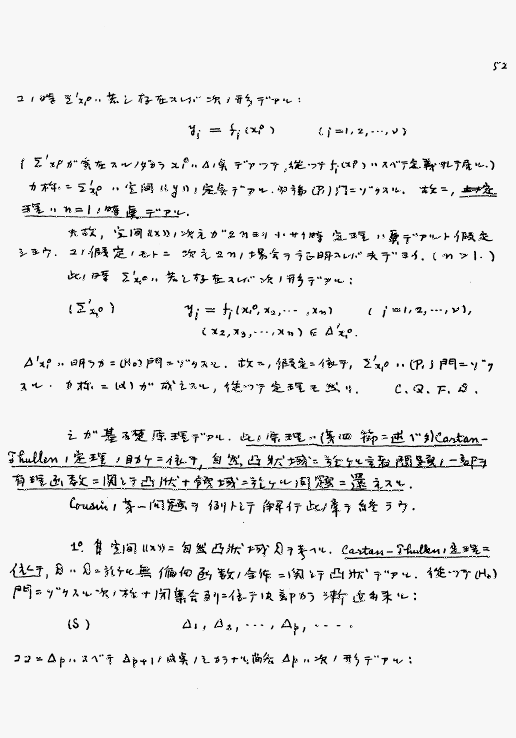 52
コノ時 Σ'x₁⁰ ハ若シ存在スレバ次ノ形デアル:
yⱼ = fⱼ(x₁⁰) (j=1,2,…,ν)
(Σ'x₁⁰ ガ存在スル
x₁⁰ ハ Δノ点デアツテ, 従ツテ fⱼ(x₁⁰) ハスベテ定義サレテ居ル.)
カ様ニ Σ'x₁⁰ ハ空間 ((y)) ノ定点デアル. 勿論 (P₁) 門ニゾクスル. 故ニ, 定
理ハ n=1ノ時眞デアル.
夫故, 空間 ((x)) ノ次元ガ n ヨリ小サイ時定理ハ眞デアルト假定
シヨウ. コノ假定ノモトニ次元 n ノ場合ヲ証明スレバ夫デヨイ. (n > 1.)
此ノ時 Σ'x₁⁰ ハ若シ存在スレバ次ノ形デアル:
(Σ'x₁⁰) yⱼ = fⱼ(x₁⁰, x₂, …, xₙ) (j=1,2,…,ν),
(x₂, x₃, …, xₙ) ∈ Δ'x₁⁰.
Δ'x₁⁰ ハ明ラカニ (H₀) 門ニゾクスル. 故ニ, 假定ニ依テ, Σ'x₁⁰ ハ (P₁) 門ニゾク
スル. カ様ニ (α) ガ成立スル, 従ツテ定理モ然リ. C. Q. F. D.
之ガ基礎原理デアル. 此ノ原理ハ (第四節ニ述ベタ) Cartan-
Thullen ノ定理ノ助ケニ依テ, 自然凸狀域ニ於ケル諸問題ノ一部ヲ
有理函數ニ関シテ凸狀ナ領域ニ於ケル問題ニ還元スル.
Cousin ノ第一問題ヲ例トシテ解行此ノ章ヲ終ラウ.
1º. 有空間 ((x)) ニ自然凸狀域 𝔇 ヲ考ヘル. Cartan-Thullen ノ定理ニ
依テ, 𝔇 ハ 𝔇 ニ於ケル無偏的函數ノ全体ニ関シテ凸狀デアル. 従ツテ (H₀)
門ニゾクスル次ノ様ナ閉集合列ニ依テ内部カラ漸近出来ル:
(S) Δ₁, Δ₂, …, Δₚ, ….
ココニ Δₚ ハスベテ Δₚ₊₁ ノ成点ノミカラナル, 尚各 Δₚ ハ次ノ形デアル: